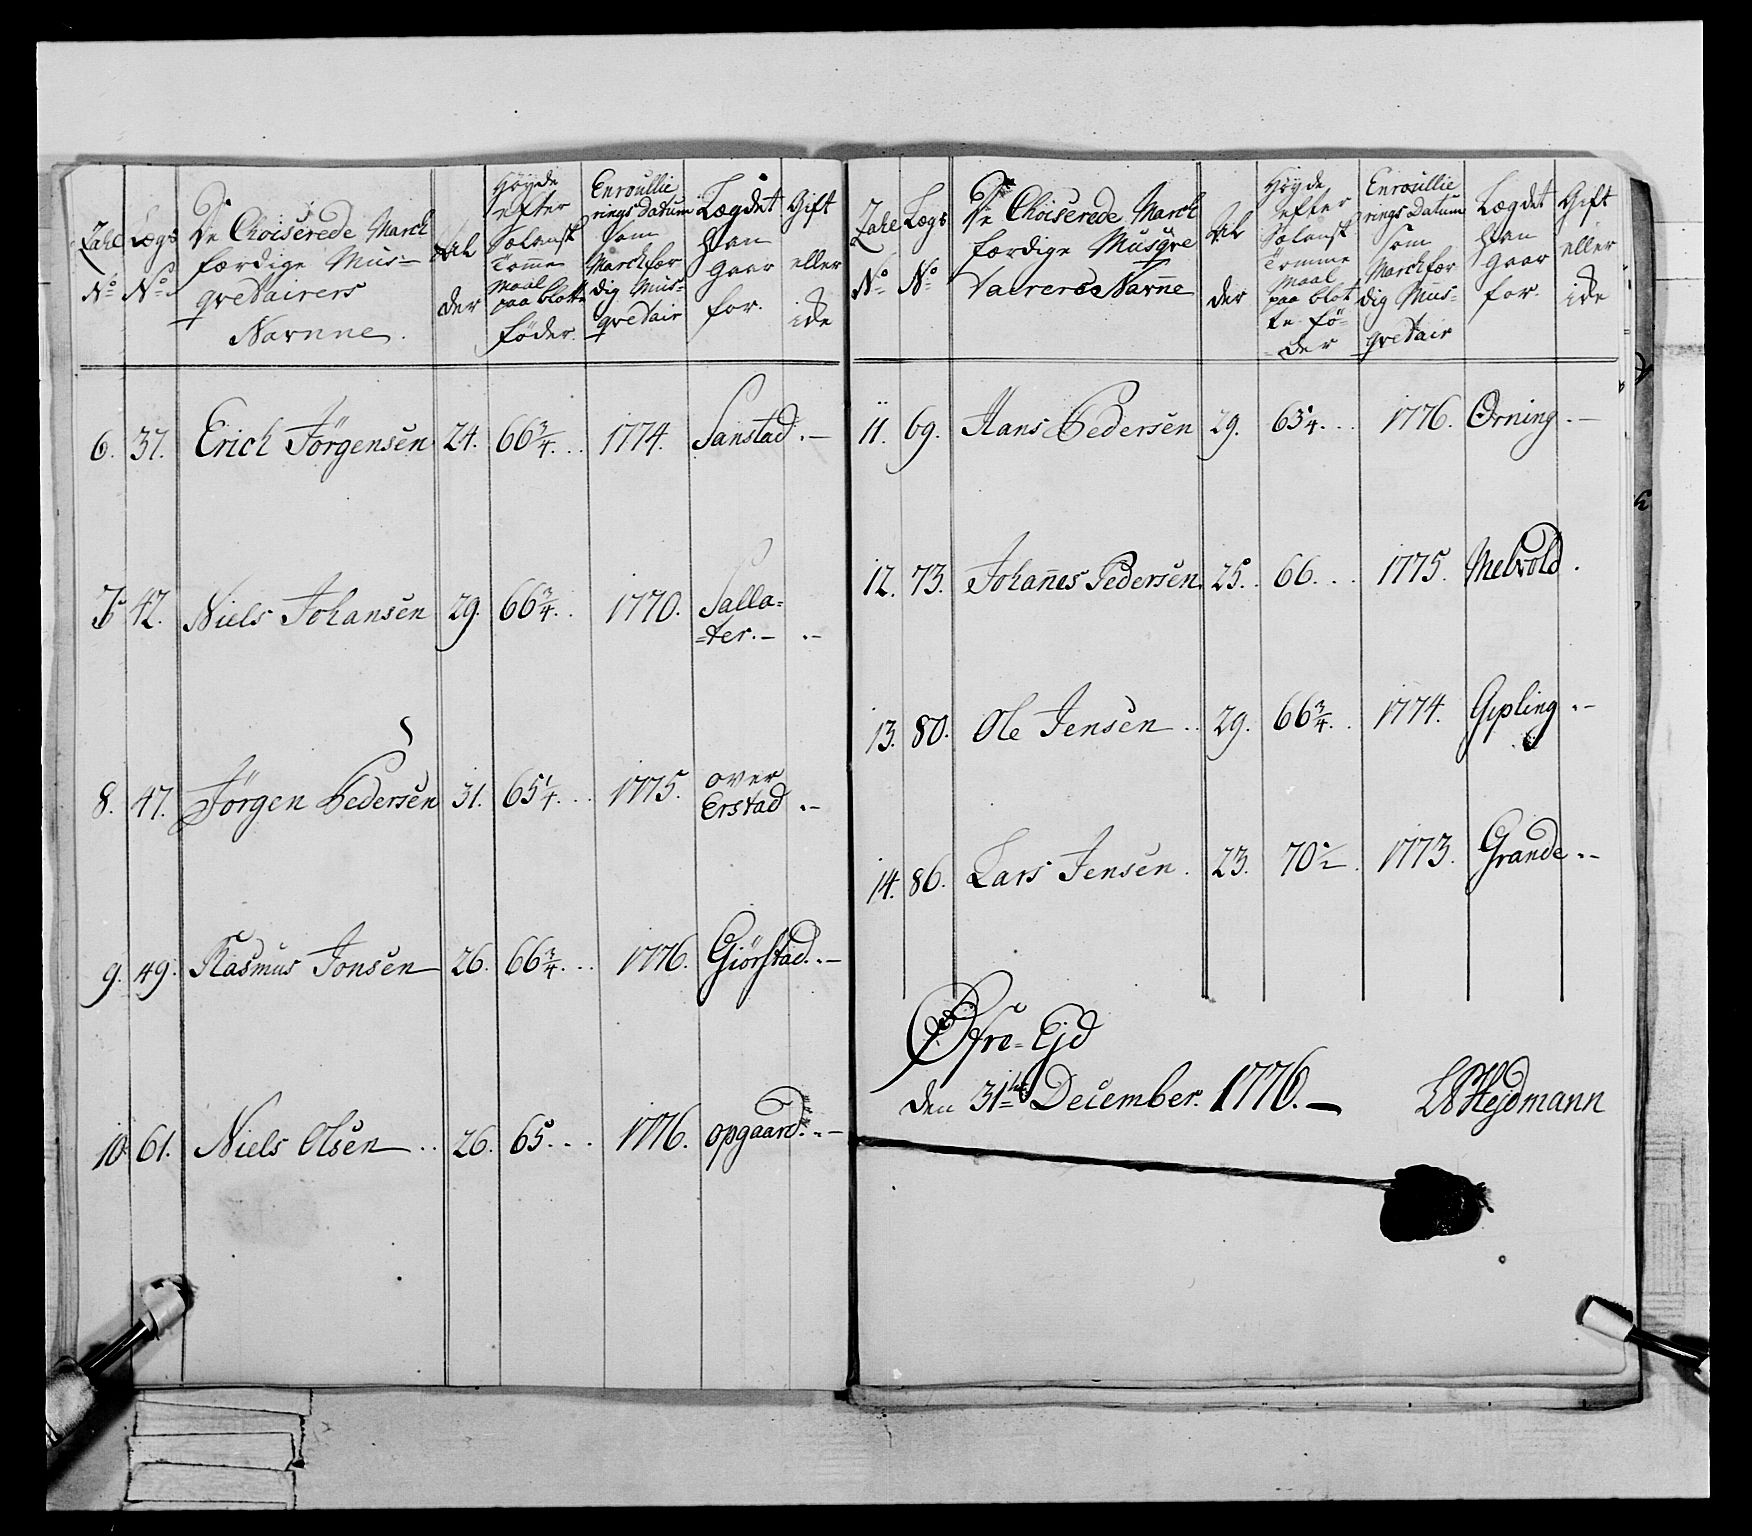 Zahl No
Lægs No
De Choiserede March færdige Mus= qvetairers Navnne.
Al der
Høyde efter Sælansk Tomme Maal paa blotte føder.
Enroullie rings Datum som March fær dig Mus= qvetair
Lægdet Han Gaar for.
Gift eller ide
6. 37. Erich Jörgensen 24. 66 3/4... 1774. Sanstad.-
7. 42. Niels Johansen 29. 66 3/4.. 1770. Salla=
=ter.- .-
8. 47. Jörgen Pedersen 31. 65 1/4... 1775. over
Erstad .-
9. 49. Rasmus Jonsen 26. 66 3/4... 1776. Giörstad..-
10. 61. Niels Olsen .. 26. 65... 1776. opgaard..-
Zahl No
Lægs No
De Choiserede March færdige Musqve tairers Navnne
Al der
Høyde efter Sælansk Tomme Maal paa blot te fø= der
Enroullie rings Datum som March fær dig Mus= qvetair
Lægdet Han Gaar for.
Gift eller ide
11. 69. Hans Pedersen 29. 65 1/4... 1776. Örning.-
12. 73. Johannes Pedersen 25. 66.... 1775. Melvold.
13. 80. Ole Jensen.. 29. 66 3/4.. 1774. Gipling.-
14. 86. Lars Jensen. 23. 70 1/2. 1773. Grande.-
Øfre-Ejd
den 31te December. 1776.- Heydmann